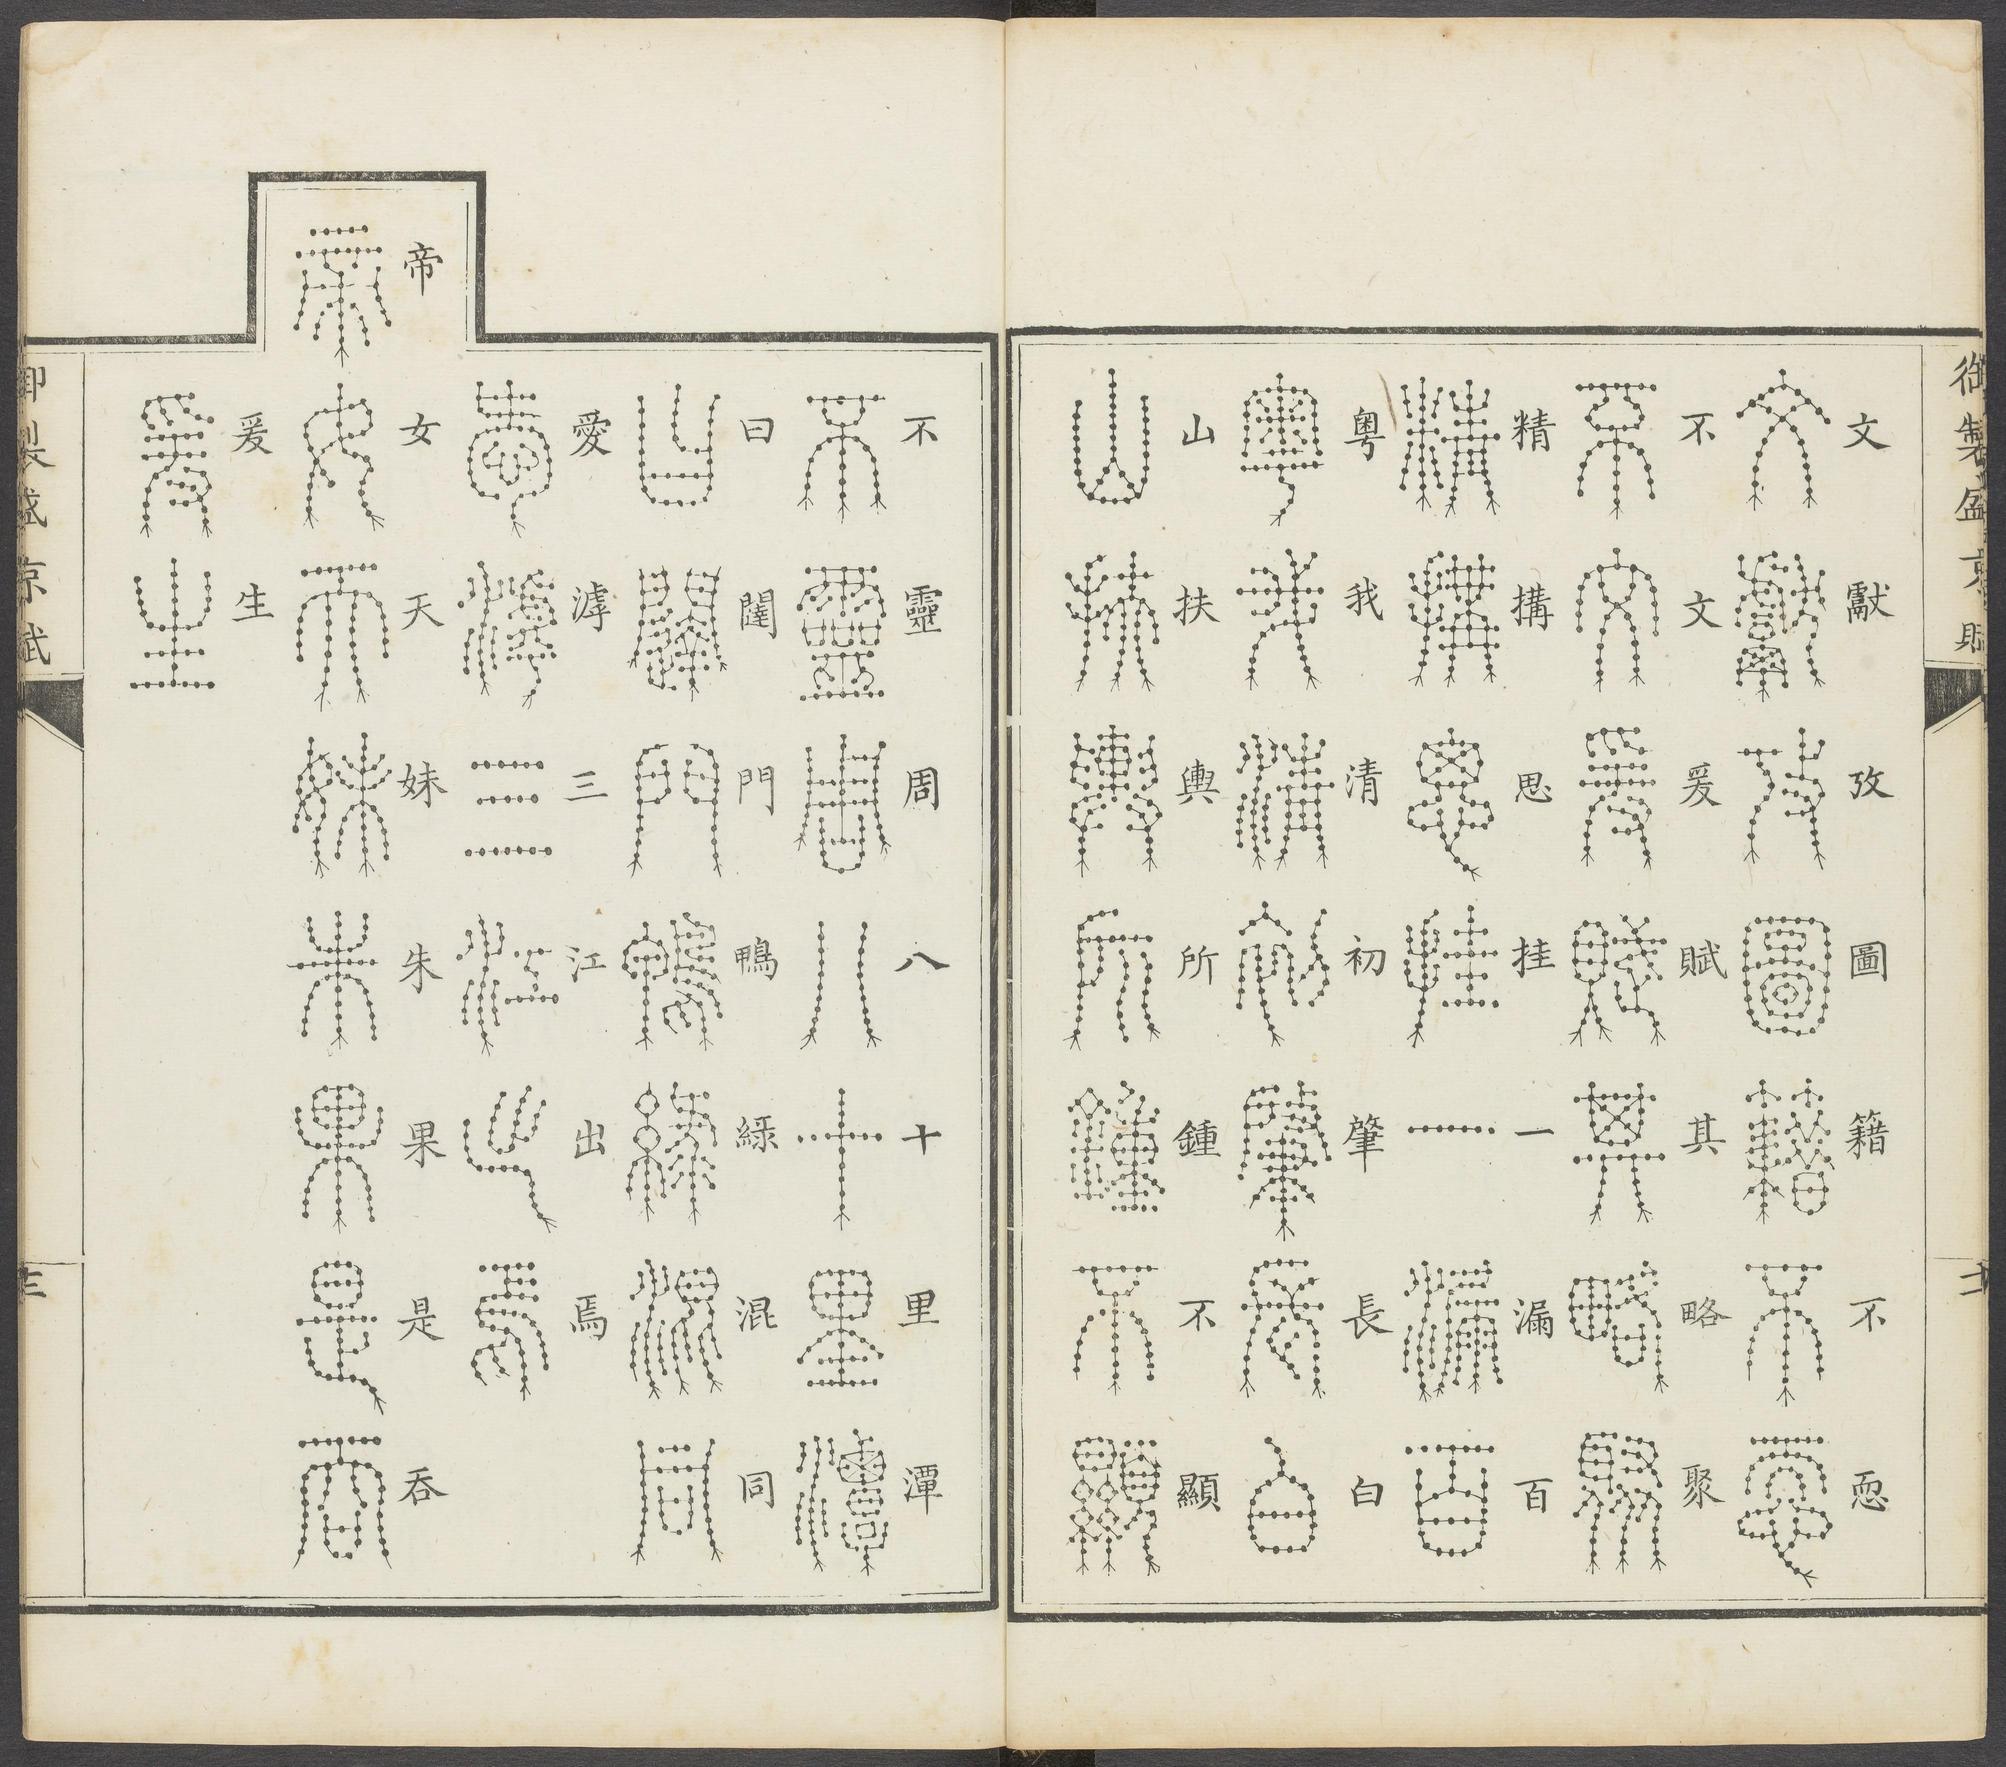 御製盛京賦 二
文獻攷圖籍不恧
不文爰賦其略聚
精搆思挂一漏百
粵我清初肇長白
山扶輿所鍾不顯
不靈周八十里潭
曰闥門鴨綠混同
愛滹三江出焉
帝女天妹朱果是吞
爰生
御製盛京賦 三